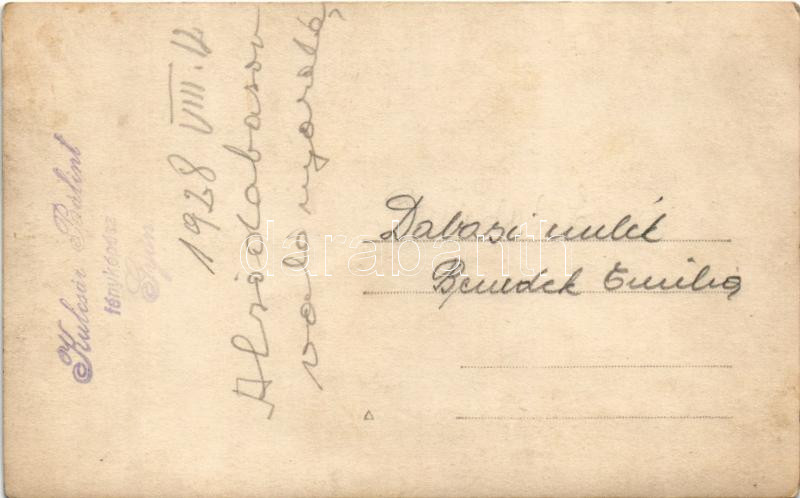 Kulcsár Bálint
fényképész
Gyón
1928 VIII. 12
Alsódabason
való nyaralás
Dabasi emlék
Benedek Emilia
darabanth